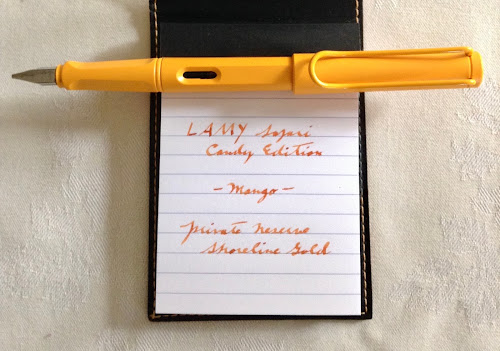 LAMY Safari
Candy Edition
- Mango -
Private Reserve
Shoreline Gold